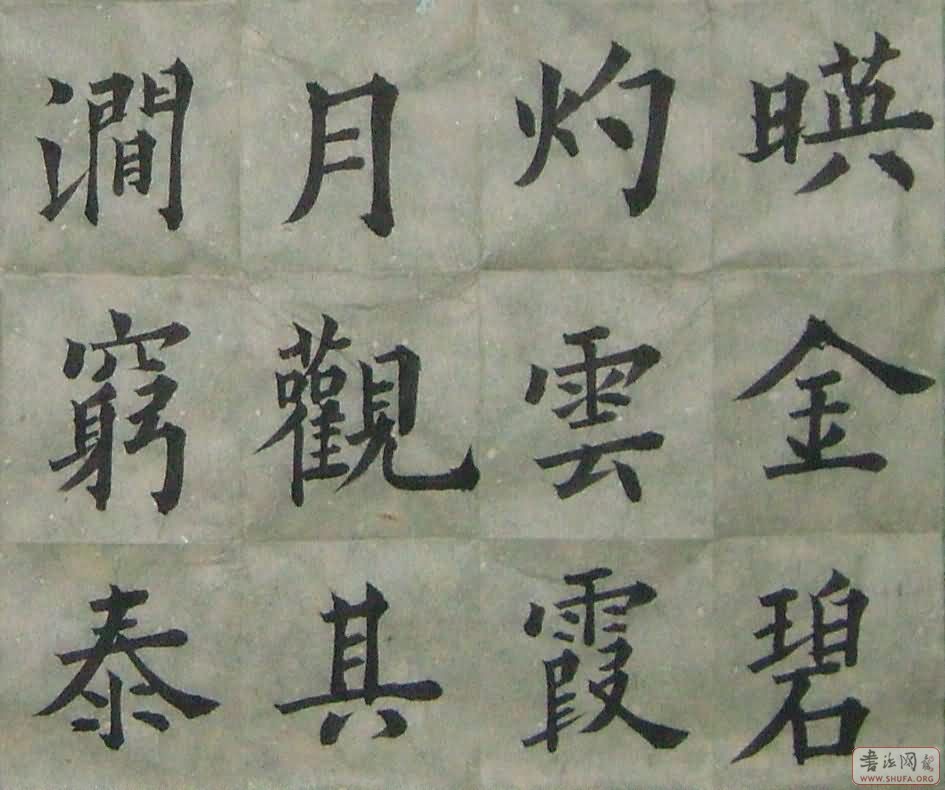 暎金碧
灼雲霞
月觀其
澗窮泰
書法网
WWW.SHUFA.ORG